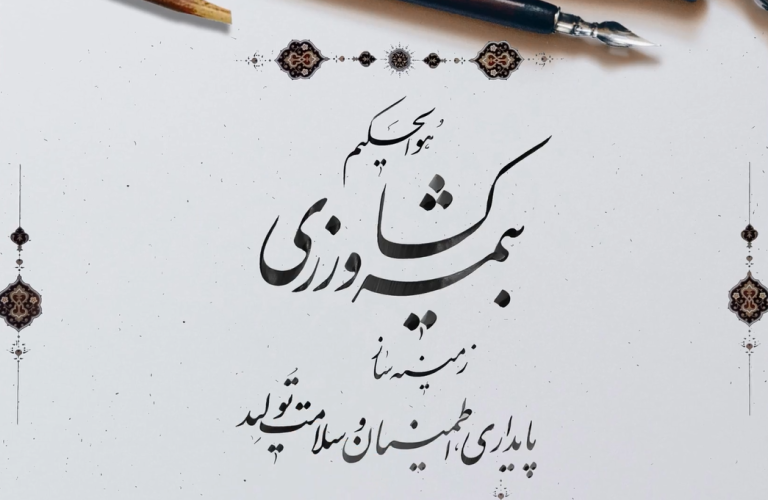 هوالحکیم
بیمه کشاورزی
زمینه ساز
پایداری، اطمینان و سلامت تولید